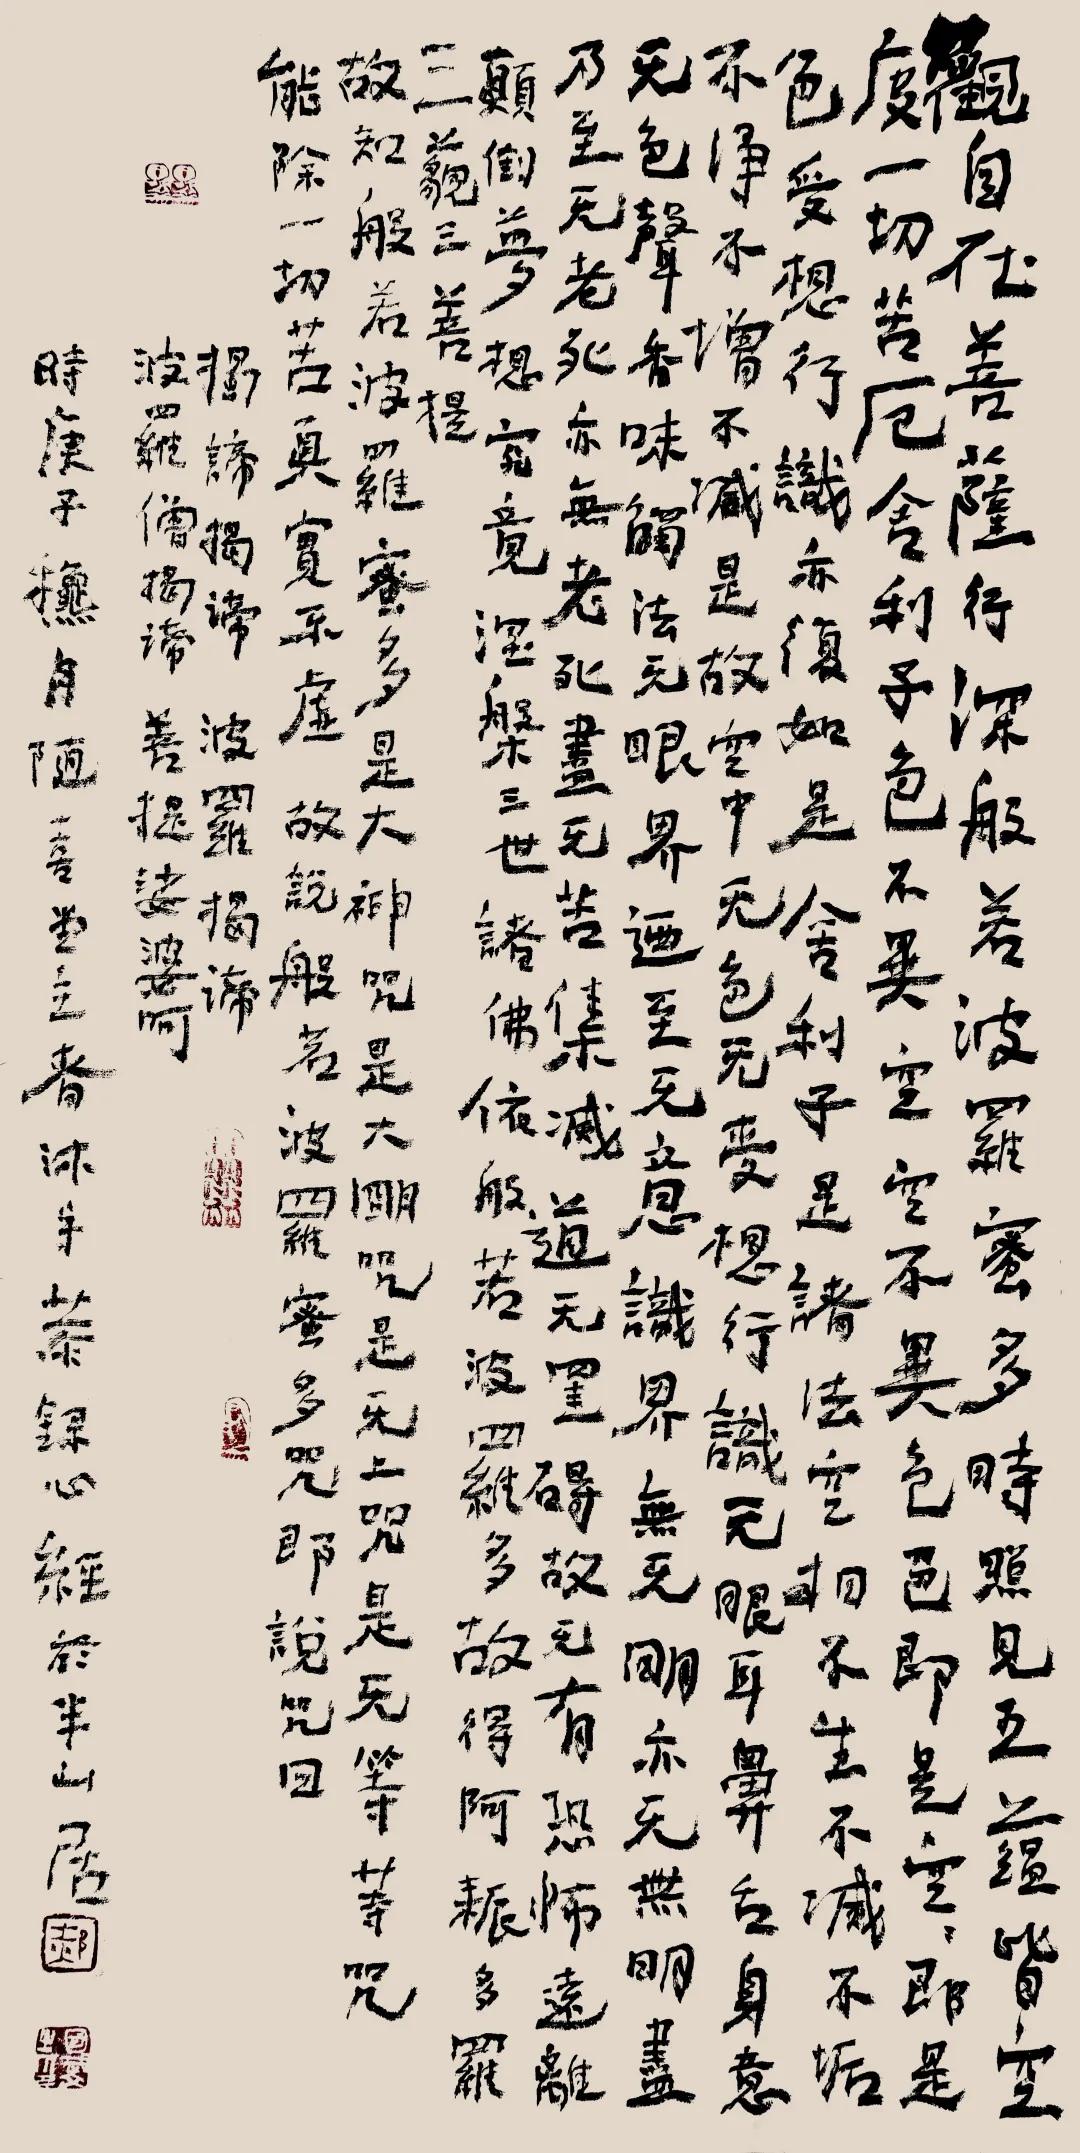 觀自在菩薩行深般若波羅蜜多時照見五蘊皆空
度一切苦厄舍利子色不異空空不異色色即是空、即是
色受想行識亦復如是舍利子是諸法空相不生不滅不垢
不淨不增不減是故空中无色无受想行識无眼耳鼻舌身意
无色聲香味觸法无眼界迺至无意識界無无明亦无無明盡
乃至无老死亦無老死盡无苦集滅道无罣碍故无有恐怖遠離
顛倒夢想究竟涅槃三世諸佛依般若波羅多故得阿耨多羅
三藐三菩提
故知般若波羅蜜多是大神咒是大明咒是无上咒是无等等咒
能除一切苦真實不虛故說般若波羅蜜多咒即說咒曰
揭諦揭諦波羅揭諦
波羅僧揭諦菩提娑婆呵
時庚子穐月陋喜堂主沐手恭録心經於半山居
郝